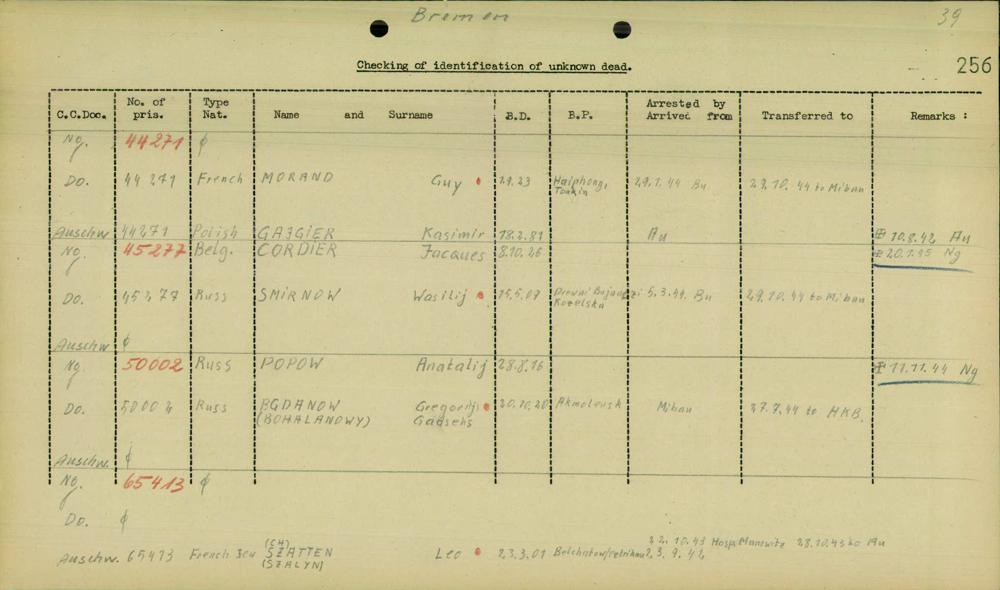 Bremen 39
256
Checking of identification of unknown dead.
C.C.Doc. No. of pris. Type Nat. Name and Surname B.D. B.P. Arrested by Arrived from Transferred to Remarks :
Ng. 44271 ∅
Do. 44271 French MORAND Guy 2.9.23 Haiphong, Tonkin 29.1.44 Bu 29.10.44 to Mibau
Auschw. 44271 Polish GAJGIER Kasimir 18.2.81 Au 10.8.42 Au
Ng. 45277 Belg. CORDIER Jacques 8.10.26 20.1.45 Ng
Do. 45277 Russ SMIRNOW Wasilij 15.5.07 Kozelska 5.3.44 Bu 29.10.44 to Mibau
Auschw. ∅
Ng. 50002 Russ POPOW Anatalij 28.8.16 11.11.44 Ng
Do. 50002 Russ BGDANOW Gregorij 20.10.20 Akmolovsk Mibau 27.7.44 to HKB.
(BOHALANOWY)
Auschw. ∅
Ng. 65413 ∅
Do. ∅
(SH)
Auschw. 65413 French Jew SZATTEN Leo 23.3.01 22.10.43 Hosp. Monowitz 28.10.43 to Au
(SZALYN) 2.3.9.42